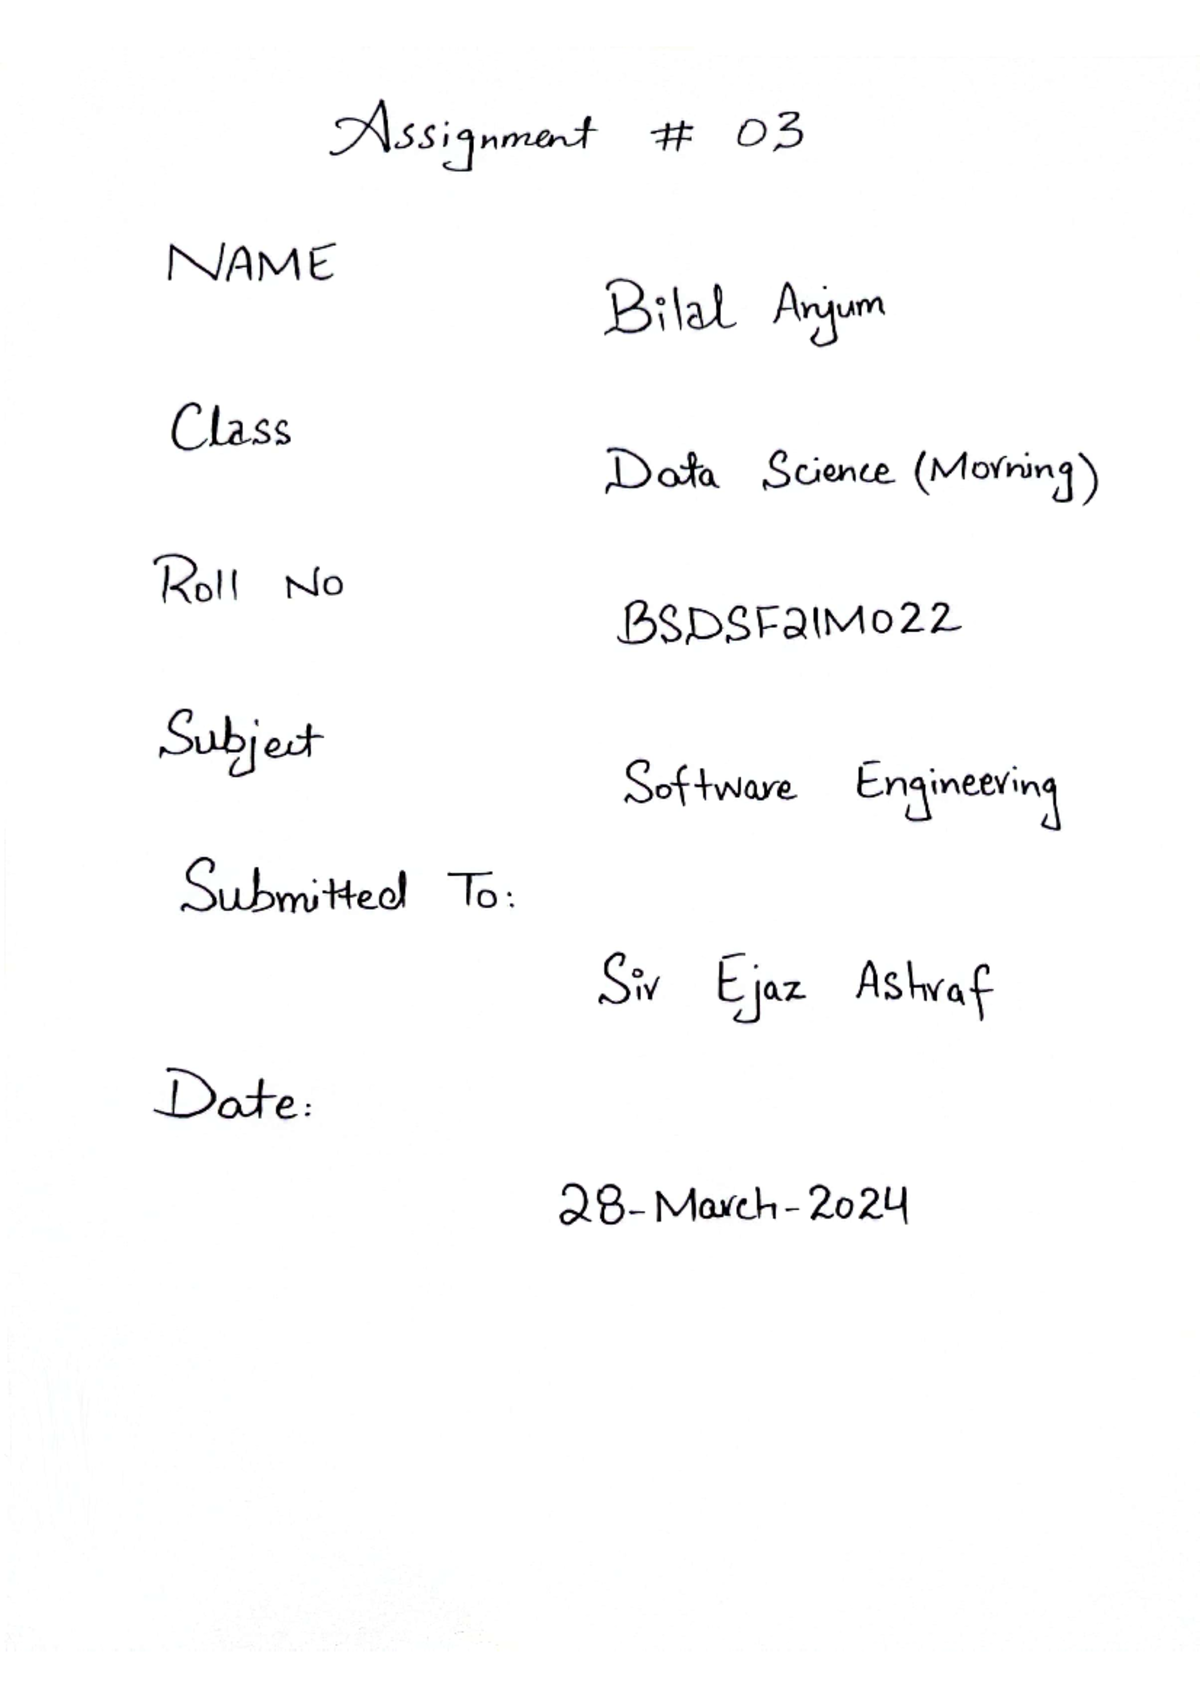 Assignment # 03
NAME
Bilal Anjum
Class
Data Science (Morning)
Roll No
BSDSF21M022
Subject
Software Engineering
Submitted To:
Sir Ejaz Ashraf
Date:
28-March-2024